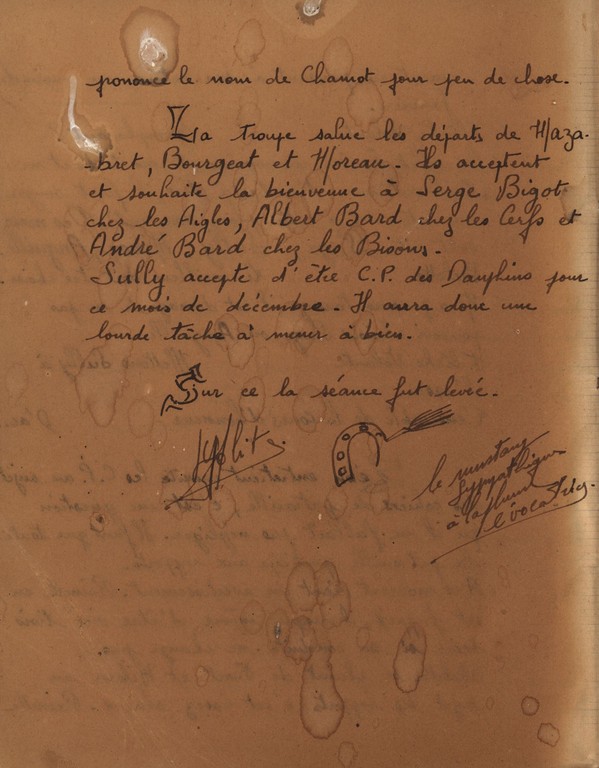 prononce le nom de Chamot pour peu de chose.
La troupe salue les départs de Maza-
-bret, Bourgeat et Moreau. Ils acceptent
et souhaite la bienvenue à Serge Bigot
chez les Aigles, Albert Bard chez les Cerfs et
André Bard chez les Bisons.
Sully accepte d'être C.P. des Dauphins pour
ce mois de décembre. Il aura donc une
lourde tâche à mener à bien.
Sur ce la séance fut levée.
le mustang
sympathique
à la plume
évocatrice.